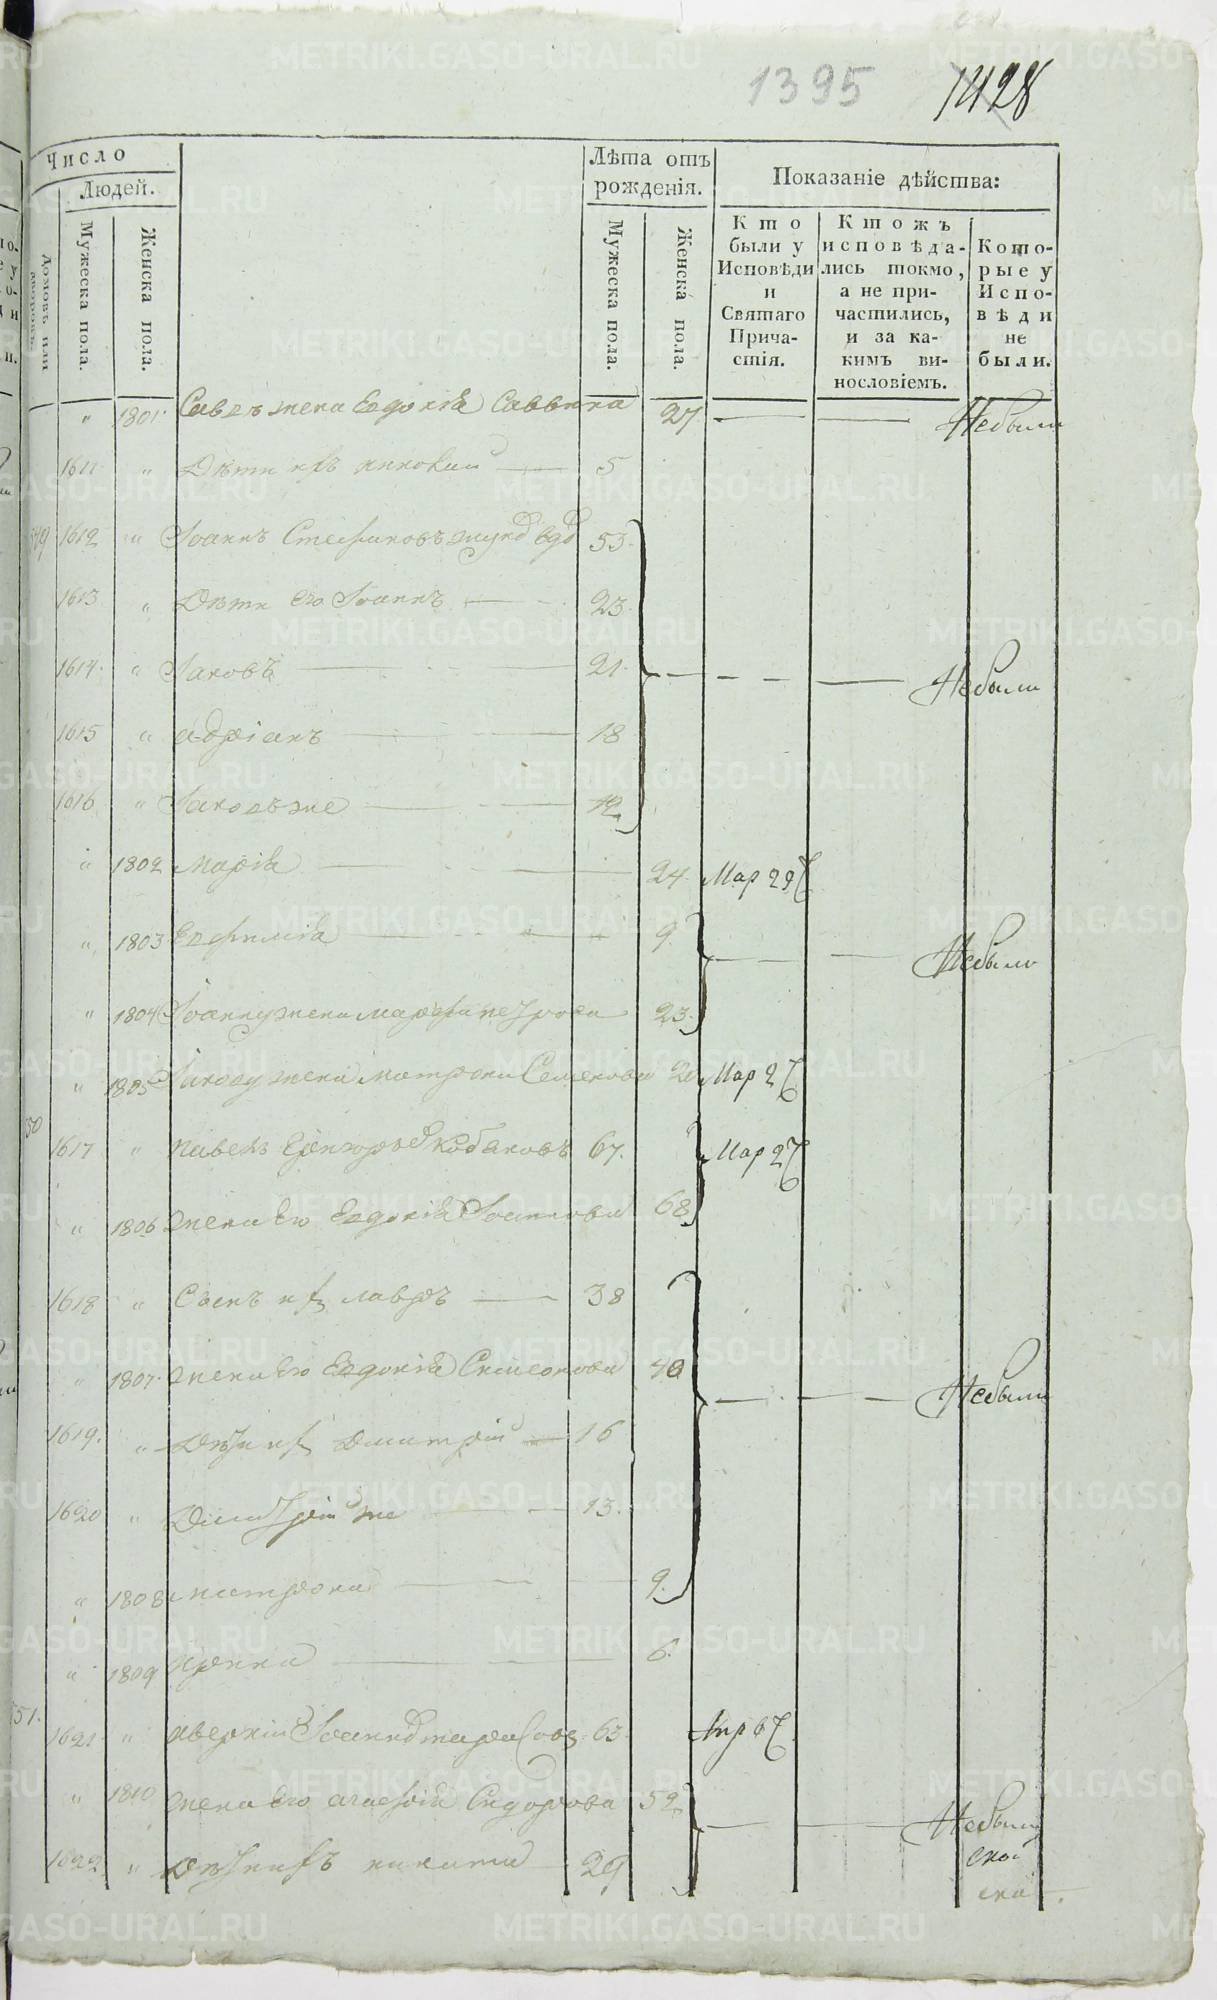 1395 1428
Число
Людей.
Домовъ или дворовъ.
Мужеска пола.
Женска пола.
Лѣта отъ
рожденія.
Мужеска пола.
Женска пола.
Показаніе дѣйства:
Кто
были у
Исповѣди
и
Святаго
Прича-
стія.
Ктожъ
исповѣда-
лись токмо,
а не при-
частились,
и за ка-
кимъ ви-
нословіемъ.
Кото-
рые у
Испо-
вѣди
не
были.
" 1801 жена Евдокія Саввина 27 Небыли
1611 " Дѣти ихъ 5
1612 " Іоаннъ Стефановъ вдо 53
1613 " Дѣти его Іоаннъ 23
1614 " Іаковъ 21 Небыли
1615 " Адріанъ 18
1616 " Іаковъ же 12
" 1802 Марія 24 Мар 29
" 1803 Евфимія 9 Небыли
" 1804 Іоанну жена Марфа Петрова 23
" 1805 Іакову жена Матрона Семенова Мар 27
1617 " Павелъ Григорьевъ 67 Мар 27
" 1806 Жена его Евдокія Іоаннова 68
1618 " Сынъ их Лавръ 38
" 1807 Жена его Евдокія Симеонова 40 Небыли
1619 " Дѣти их Димитрій 16
1620 " Димитрій же 13
" 1808 Матрона 9
" 1809 Ирина 6
51 1621 " Аверкій Іоаннов 63 Апр 6
" 1810 Жена его Сидорова 52 Небыли
1622 " Дѣти ихъ Никита 29